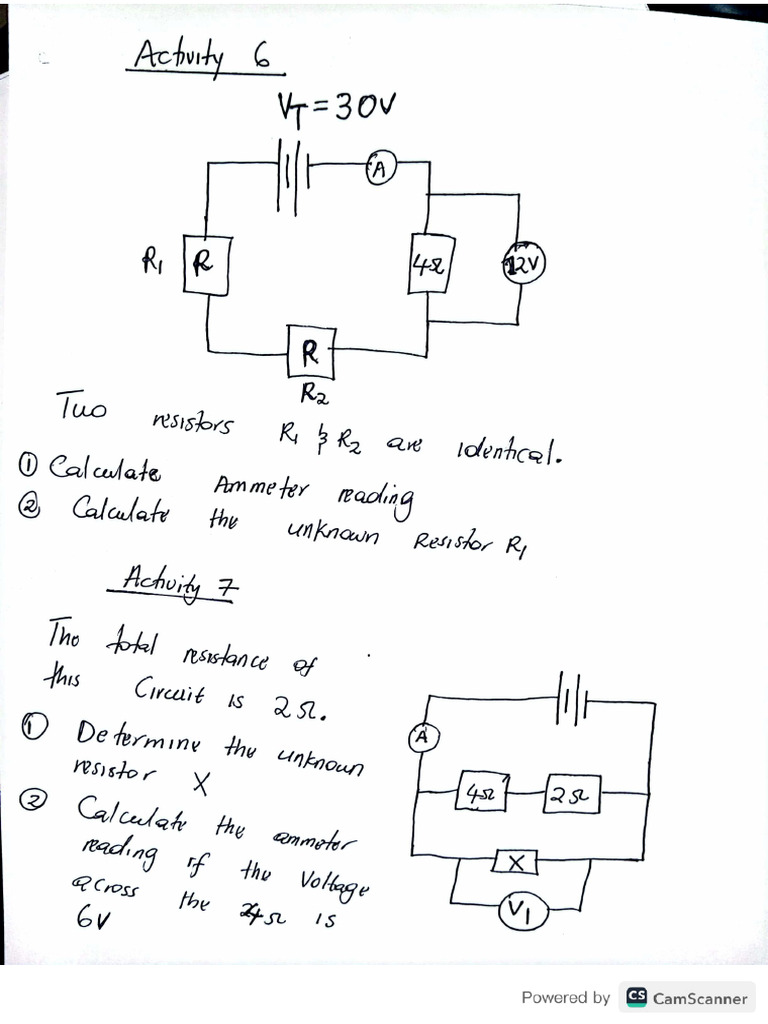 Activity 6
VT = 30V
A
R1
R
4Ω
12V
R
R2
Two resistors R1 & R2 are identical.
① Calculate Ammeter reading
② Calculate the unknown Resistor R1
Activity 7
The total resistance of
this Circuit is 2Ω.
① Determine the unknown
resistor X
② Calculate the ammeter
reading if the Voltage
across the 4Ω is
6V
A
4Ω
2Ω
X
V1
Powered by CS CamScanner